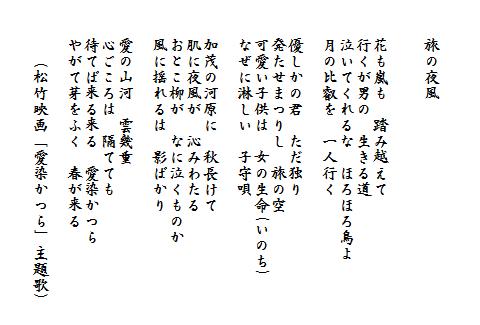 旅の夜風
花も嵐も 踏み越えて
行くが男の 生きる道
泣いてくれるな ほろほろ鳥よ
月の比叡を 一人行く
優しかの君 ただ独り
発たせまつりし 旅の空
可愛い子供は 女の生命(いのち)
なぜに淋しい 子守唄
加茂の河原に 秋長けて
肌に夜風が 沁みわたる
おとこ柳が なに泣くものか
風に揺れるは 影ばかり
愛の山河 雲幾重
心ごころは 隔てても
待てば来る来る 愛染かつら
やがて芽をふく 春が来る
(松竹映画「愛染かつら」主題歌)